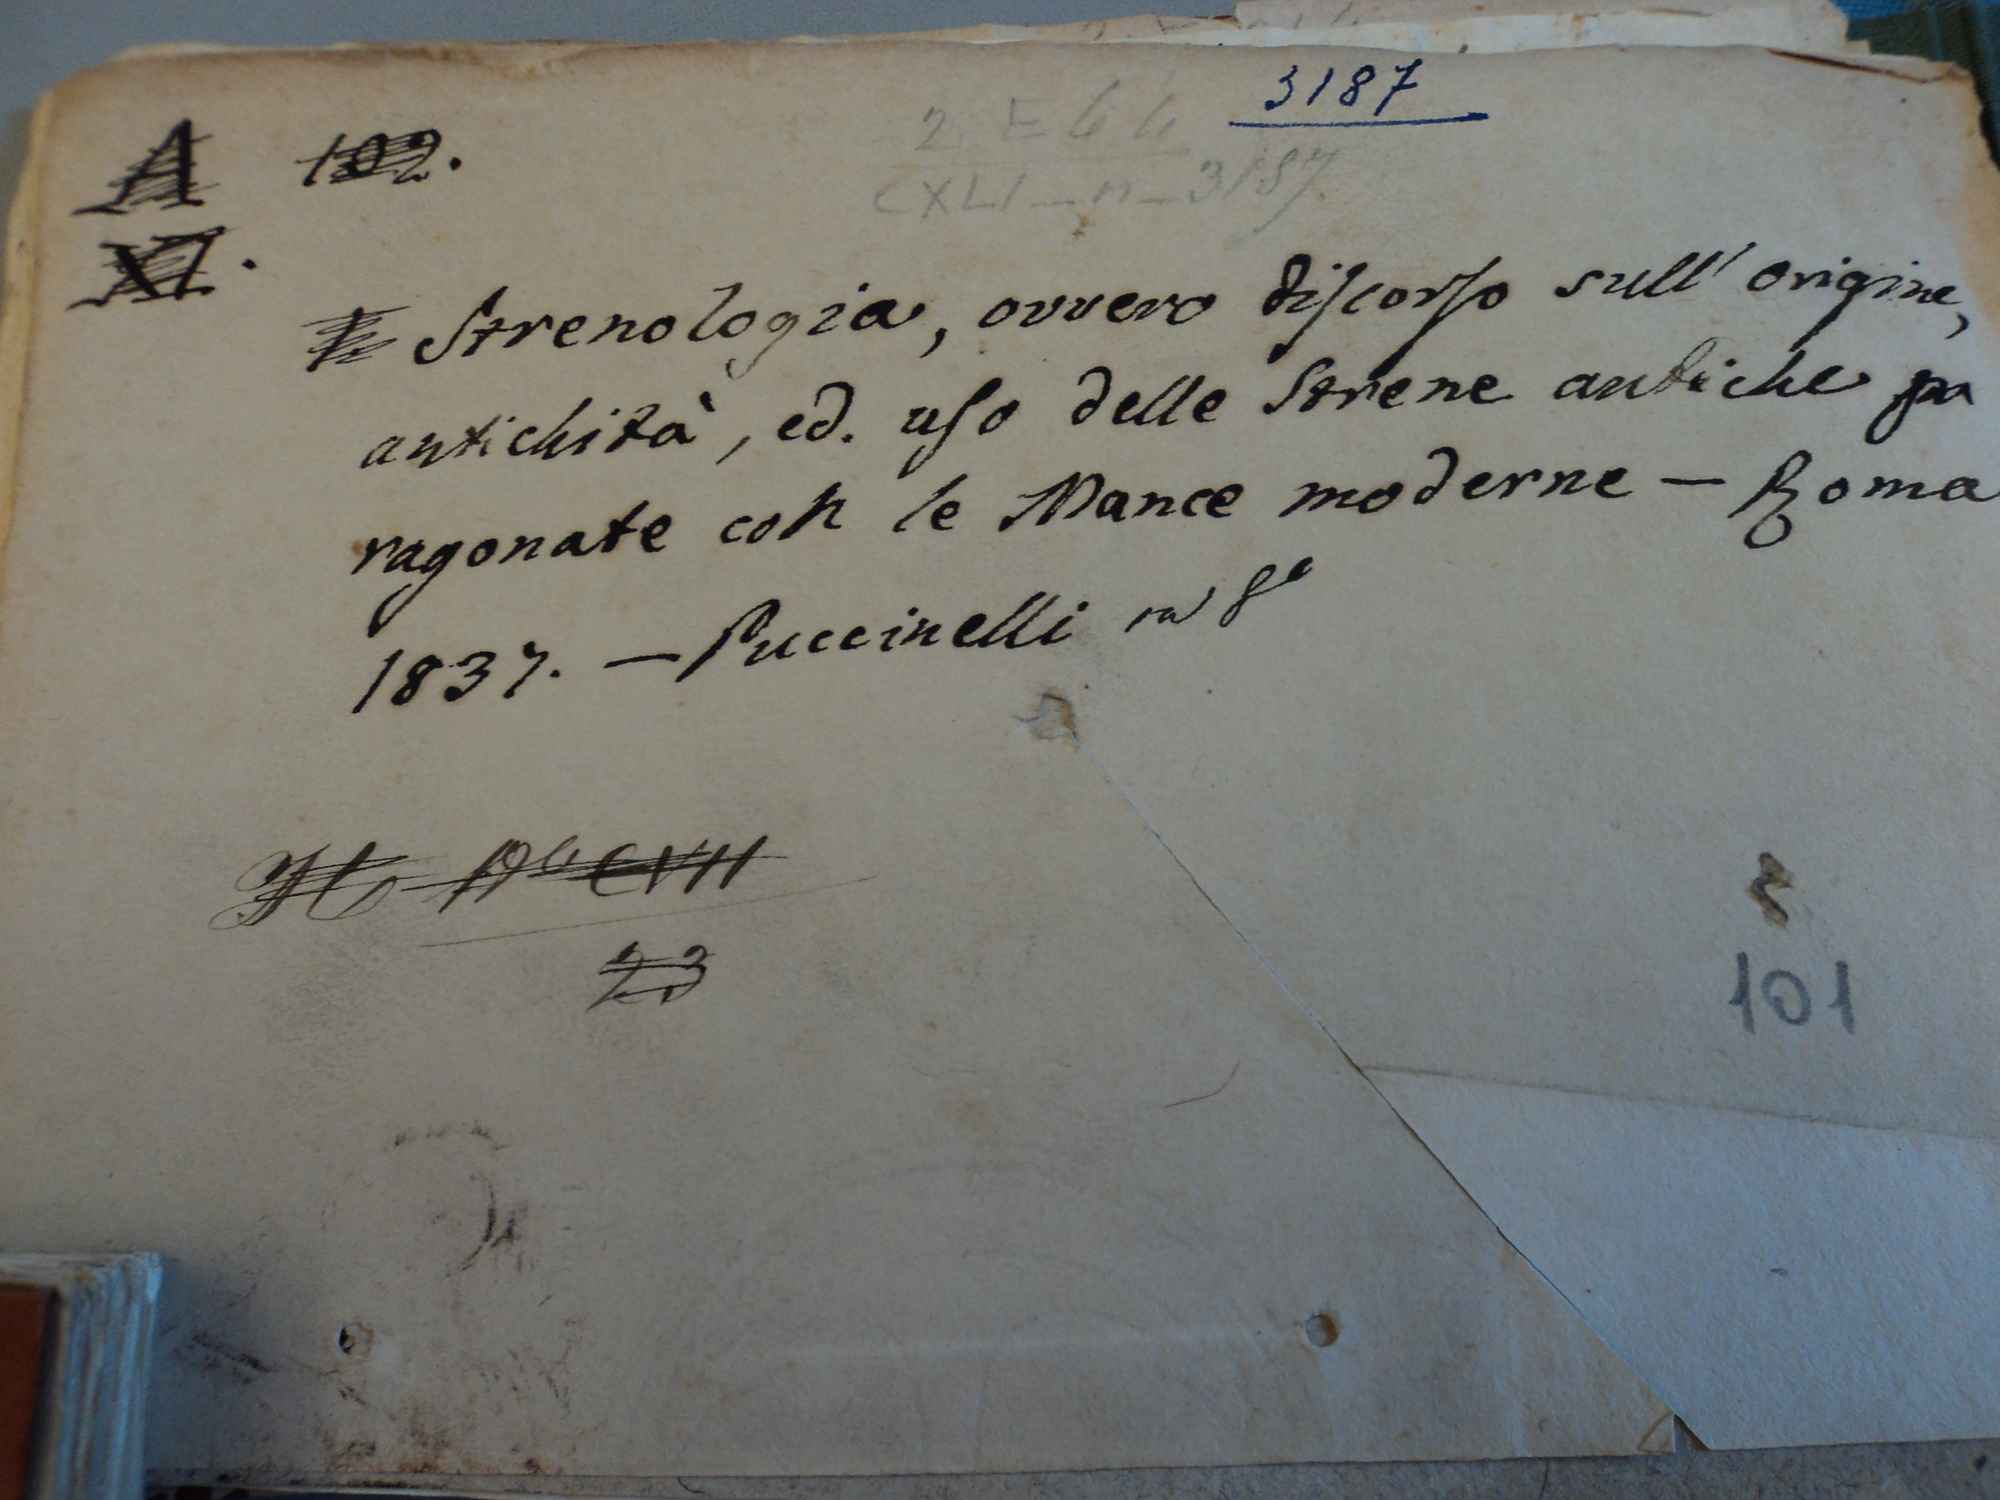 3187
2 E 64
CXLI - n - 3187.
A 102.
XI.
Strenologia, ovvero discorso sull' origine,
antichità, ed. uso delle Strene antiche pa
ragonate con le Mance moderne — Roma
1837. — Puccinelli in 8°
CVII
23
101